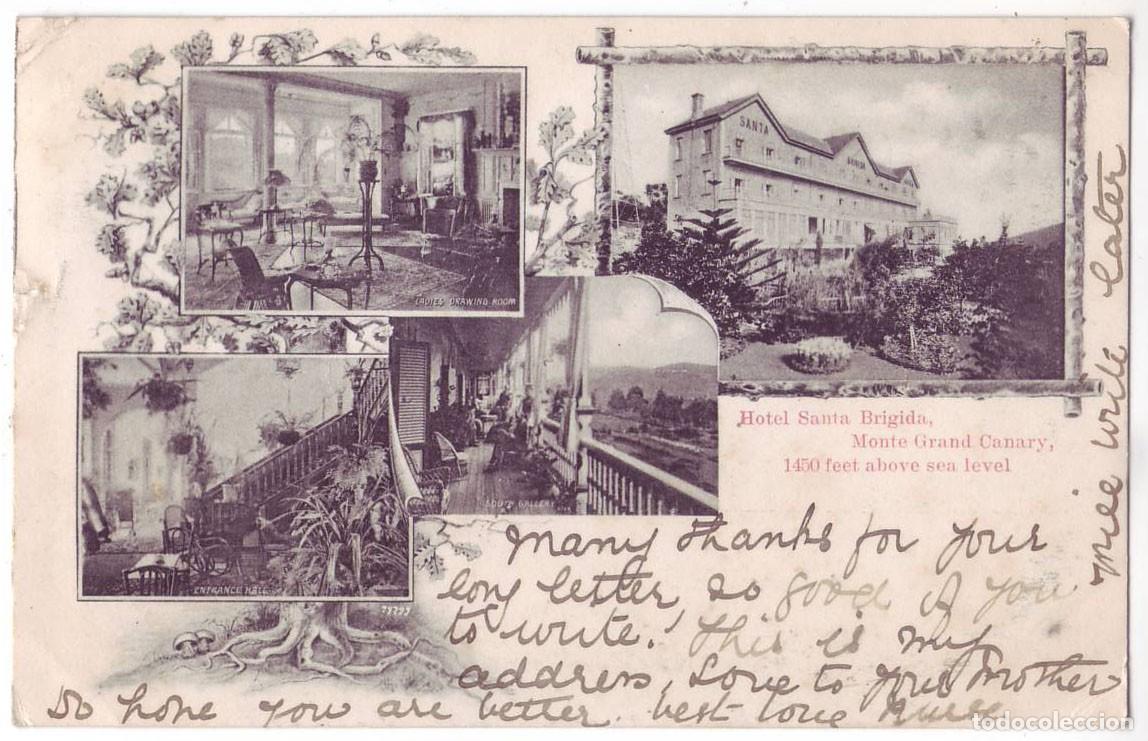 SANTA
BRIGIDA
LADIES DRAWING ROOM
Hotel Santa Brigida,
Monte Grand Canary,
1450 feet above sea level
SOUTH GALLERY
ENTRANCE HALL
Many thanks for your
long letter so good of you
to write! This is my
address, Love to your Mother
So hope you are better. best love Nurse
Will write later
todocoleccion